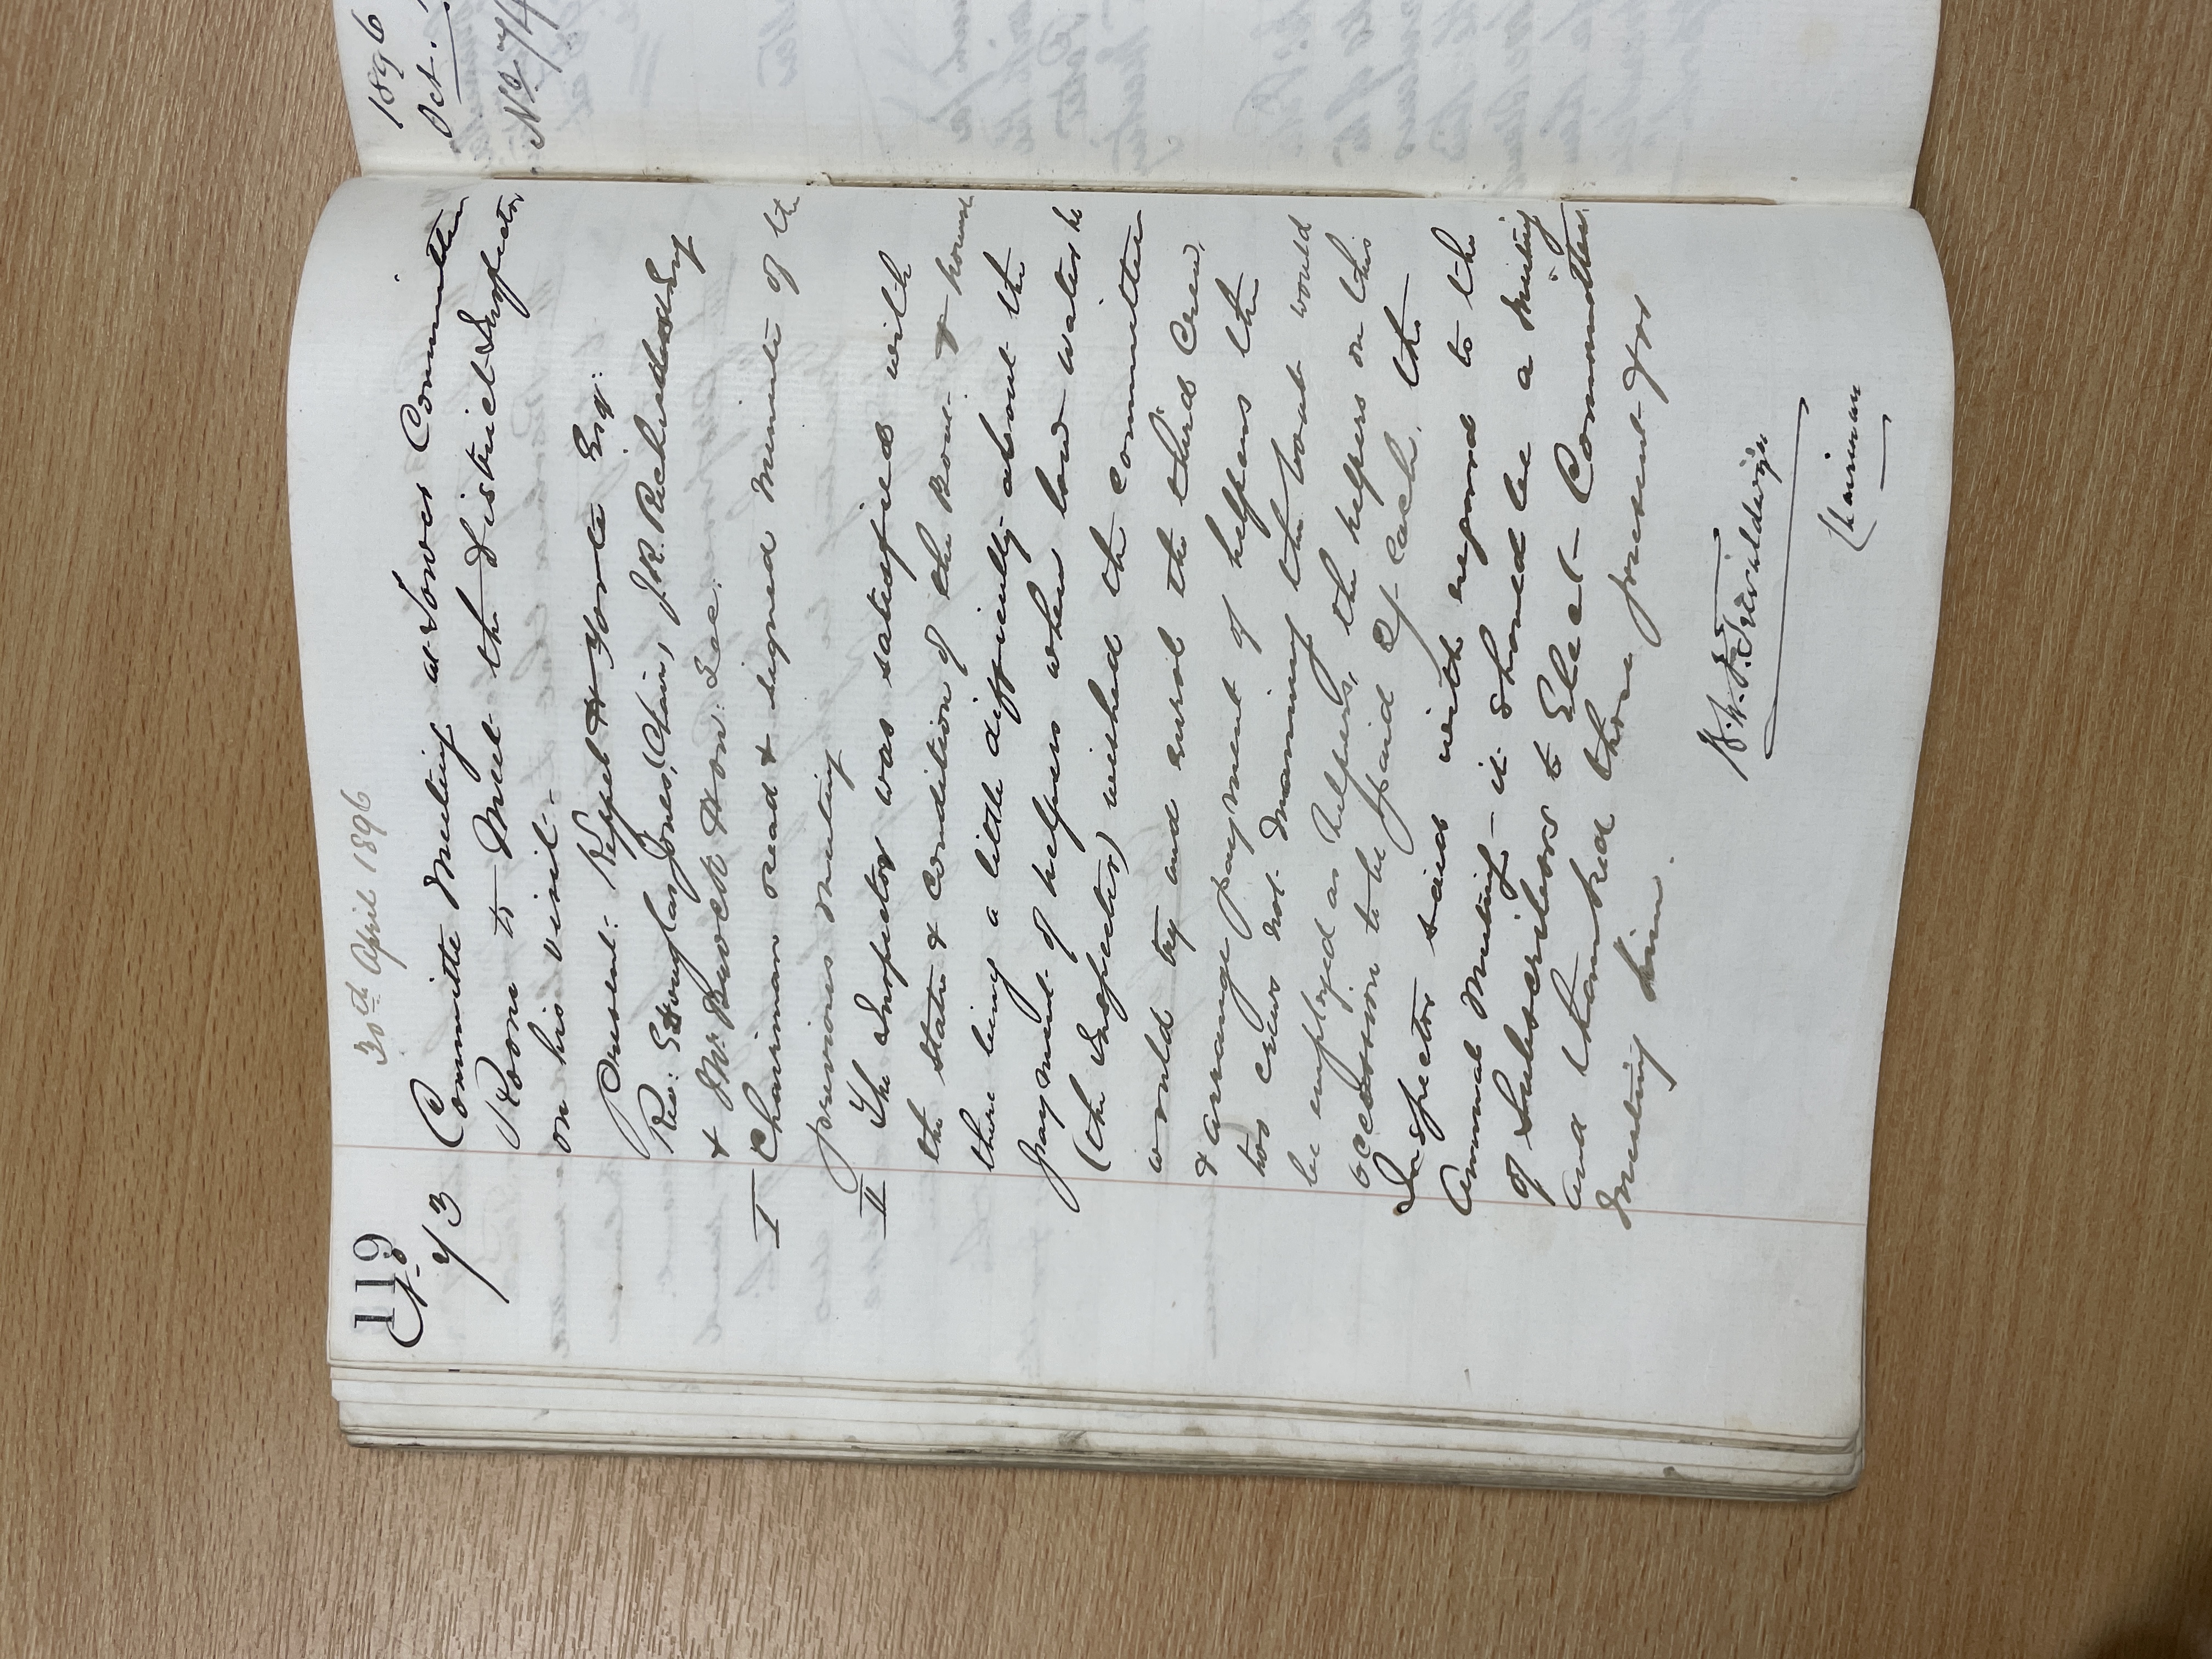 119
30th April 1896
No
73
Committee Meeting at Lower Committee
Room to Meet the District Inspector
on his visit:-
Present: Keppel H Esq:
Rev: E Douglas Jones, (Chair), J.R. Richards Esq
& Mr. Hon: Sec:
I Chairman read & signed Minute of the
previous meeting
II The Inspector was satisfied with
the state & condition of the Boat & house
there being a little difficulty about the
payment of helpers when low water he
(the Inspector) wished the Committee
would try and enrol the third Crew,
& arrange payment of helpers the
two crews not manning the boat would
be employed as helpers, the helpers on this
occasion to be paid of each. the
Inspector said with regard to the
Annual Meeting – it should be a Meeting
of Subscribers to Elect Committee
and thanked those present for
Meeting him.
Chairman
1896
Oct.
No 74